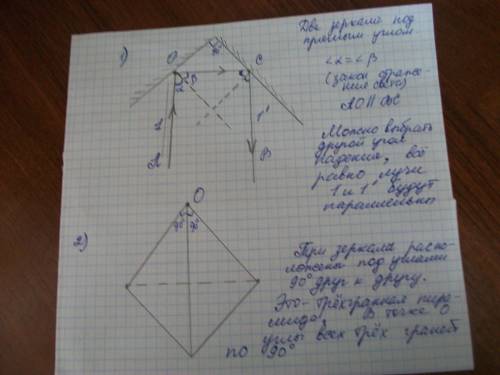 1)
Два зеркала под
прямым углом
∠α=∠β
(закон отраже-
ния света)
AO∥BC
Можно выбрать
другой угол
падения, всё
равно лучи
1 и 1' будут
параллельны
O
C
90°
α
β
1
1'
A
B
2)
O
90°
90°
Три зеркала распо-
ложены под углами
90° друг к другу.
Это-трёхгранная пира-
мида. В точке O
углы всех трёх граней
по 90°